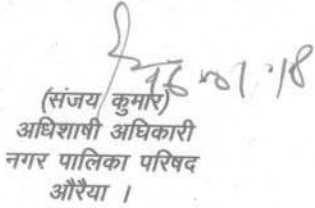 (संजय कुमार)
अधिशाषी अधिकारी
नगर पालिका परिषद
औरैया ।